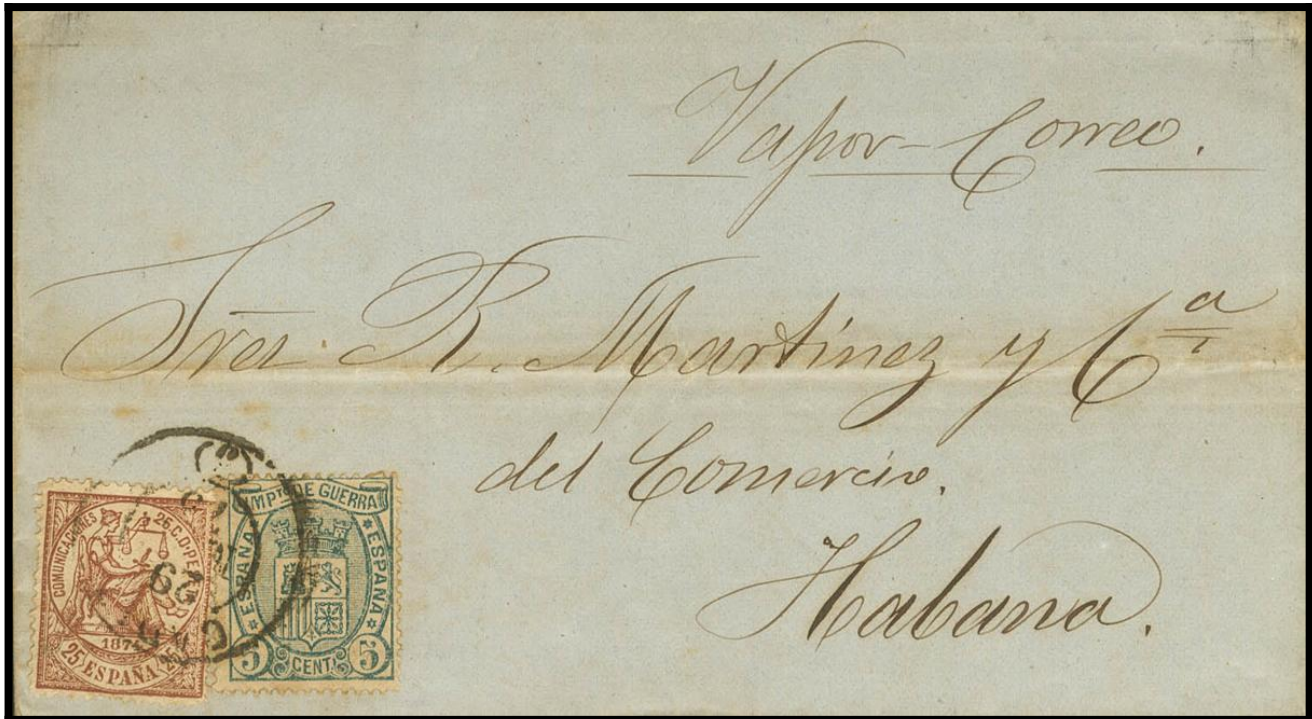 Vapor-Correo.
Sres R. Martinez y Cª
del Comercio.
Habana.
COMUNICACIONES
1874
25 ESPAÑA 25
MPTO DE GUERRA
ESPAÑA ESPAÑA
5 CENT. 5
29